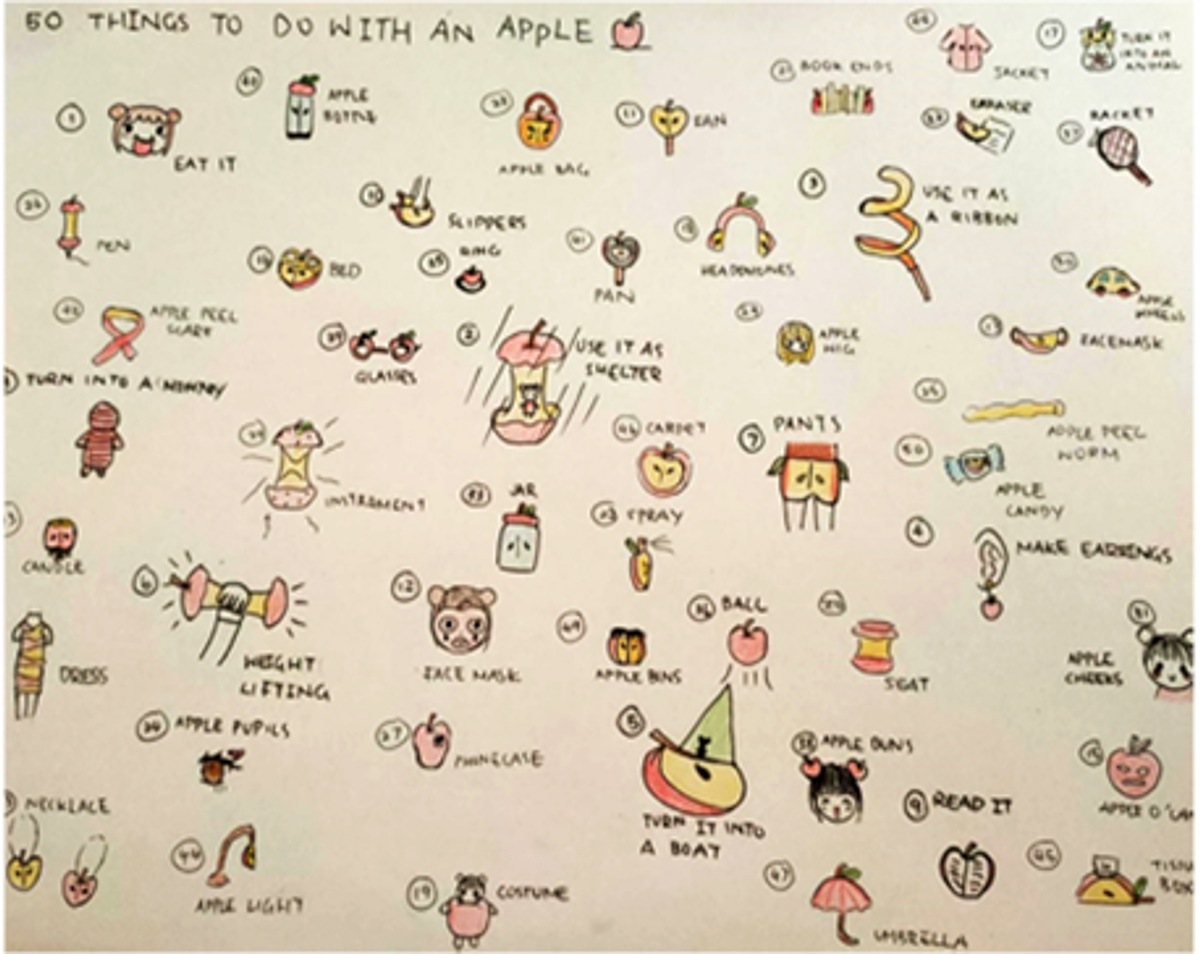 50 THINGS TO DO WITH AN APPLE
17 TURN IT
INTO AN
ANIMAL
JACKET
BOOK ENDS
APPLE
BOTTLE
1
EAT IT
APPLE BAG
11 FAN
EARASER
RACKET
PEN
SLIPPERS
3 USE IT AS
A RIBBON
BED
RING
41
PAN
18
HEADPHONES
APPLE
WHEELS
42 APPLE PEEL
SCARF
GLASSES
2 USE IT AS
SHELTER
APPLE
WIG
13 FACEMASK
TURN INTO A MUMMY
INSTRAMENT
46 CARPET
7 PANTS
APPLE PEEL
WORM
50
APPLE
CANDY
JAR
SPRAY
CANDLE
4 MAKE EARRINGS
6
WEIGHT
LIFTING
DRESS
12
FACE MASK
49
APPLE BINS
36 BALL
SEAT
31
APPLE
CHEEKS
APPLE PUPILS
27
PHONECASE
5
TURN IT INTO
A BOAT
38 APPLE BUNS
APPLE O'LAN
NECKLACE
9 READ IT
44
APPLE LIGHT
19 COSTUME
47
UMBRELLA
45 TISSU
BOX